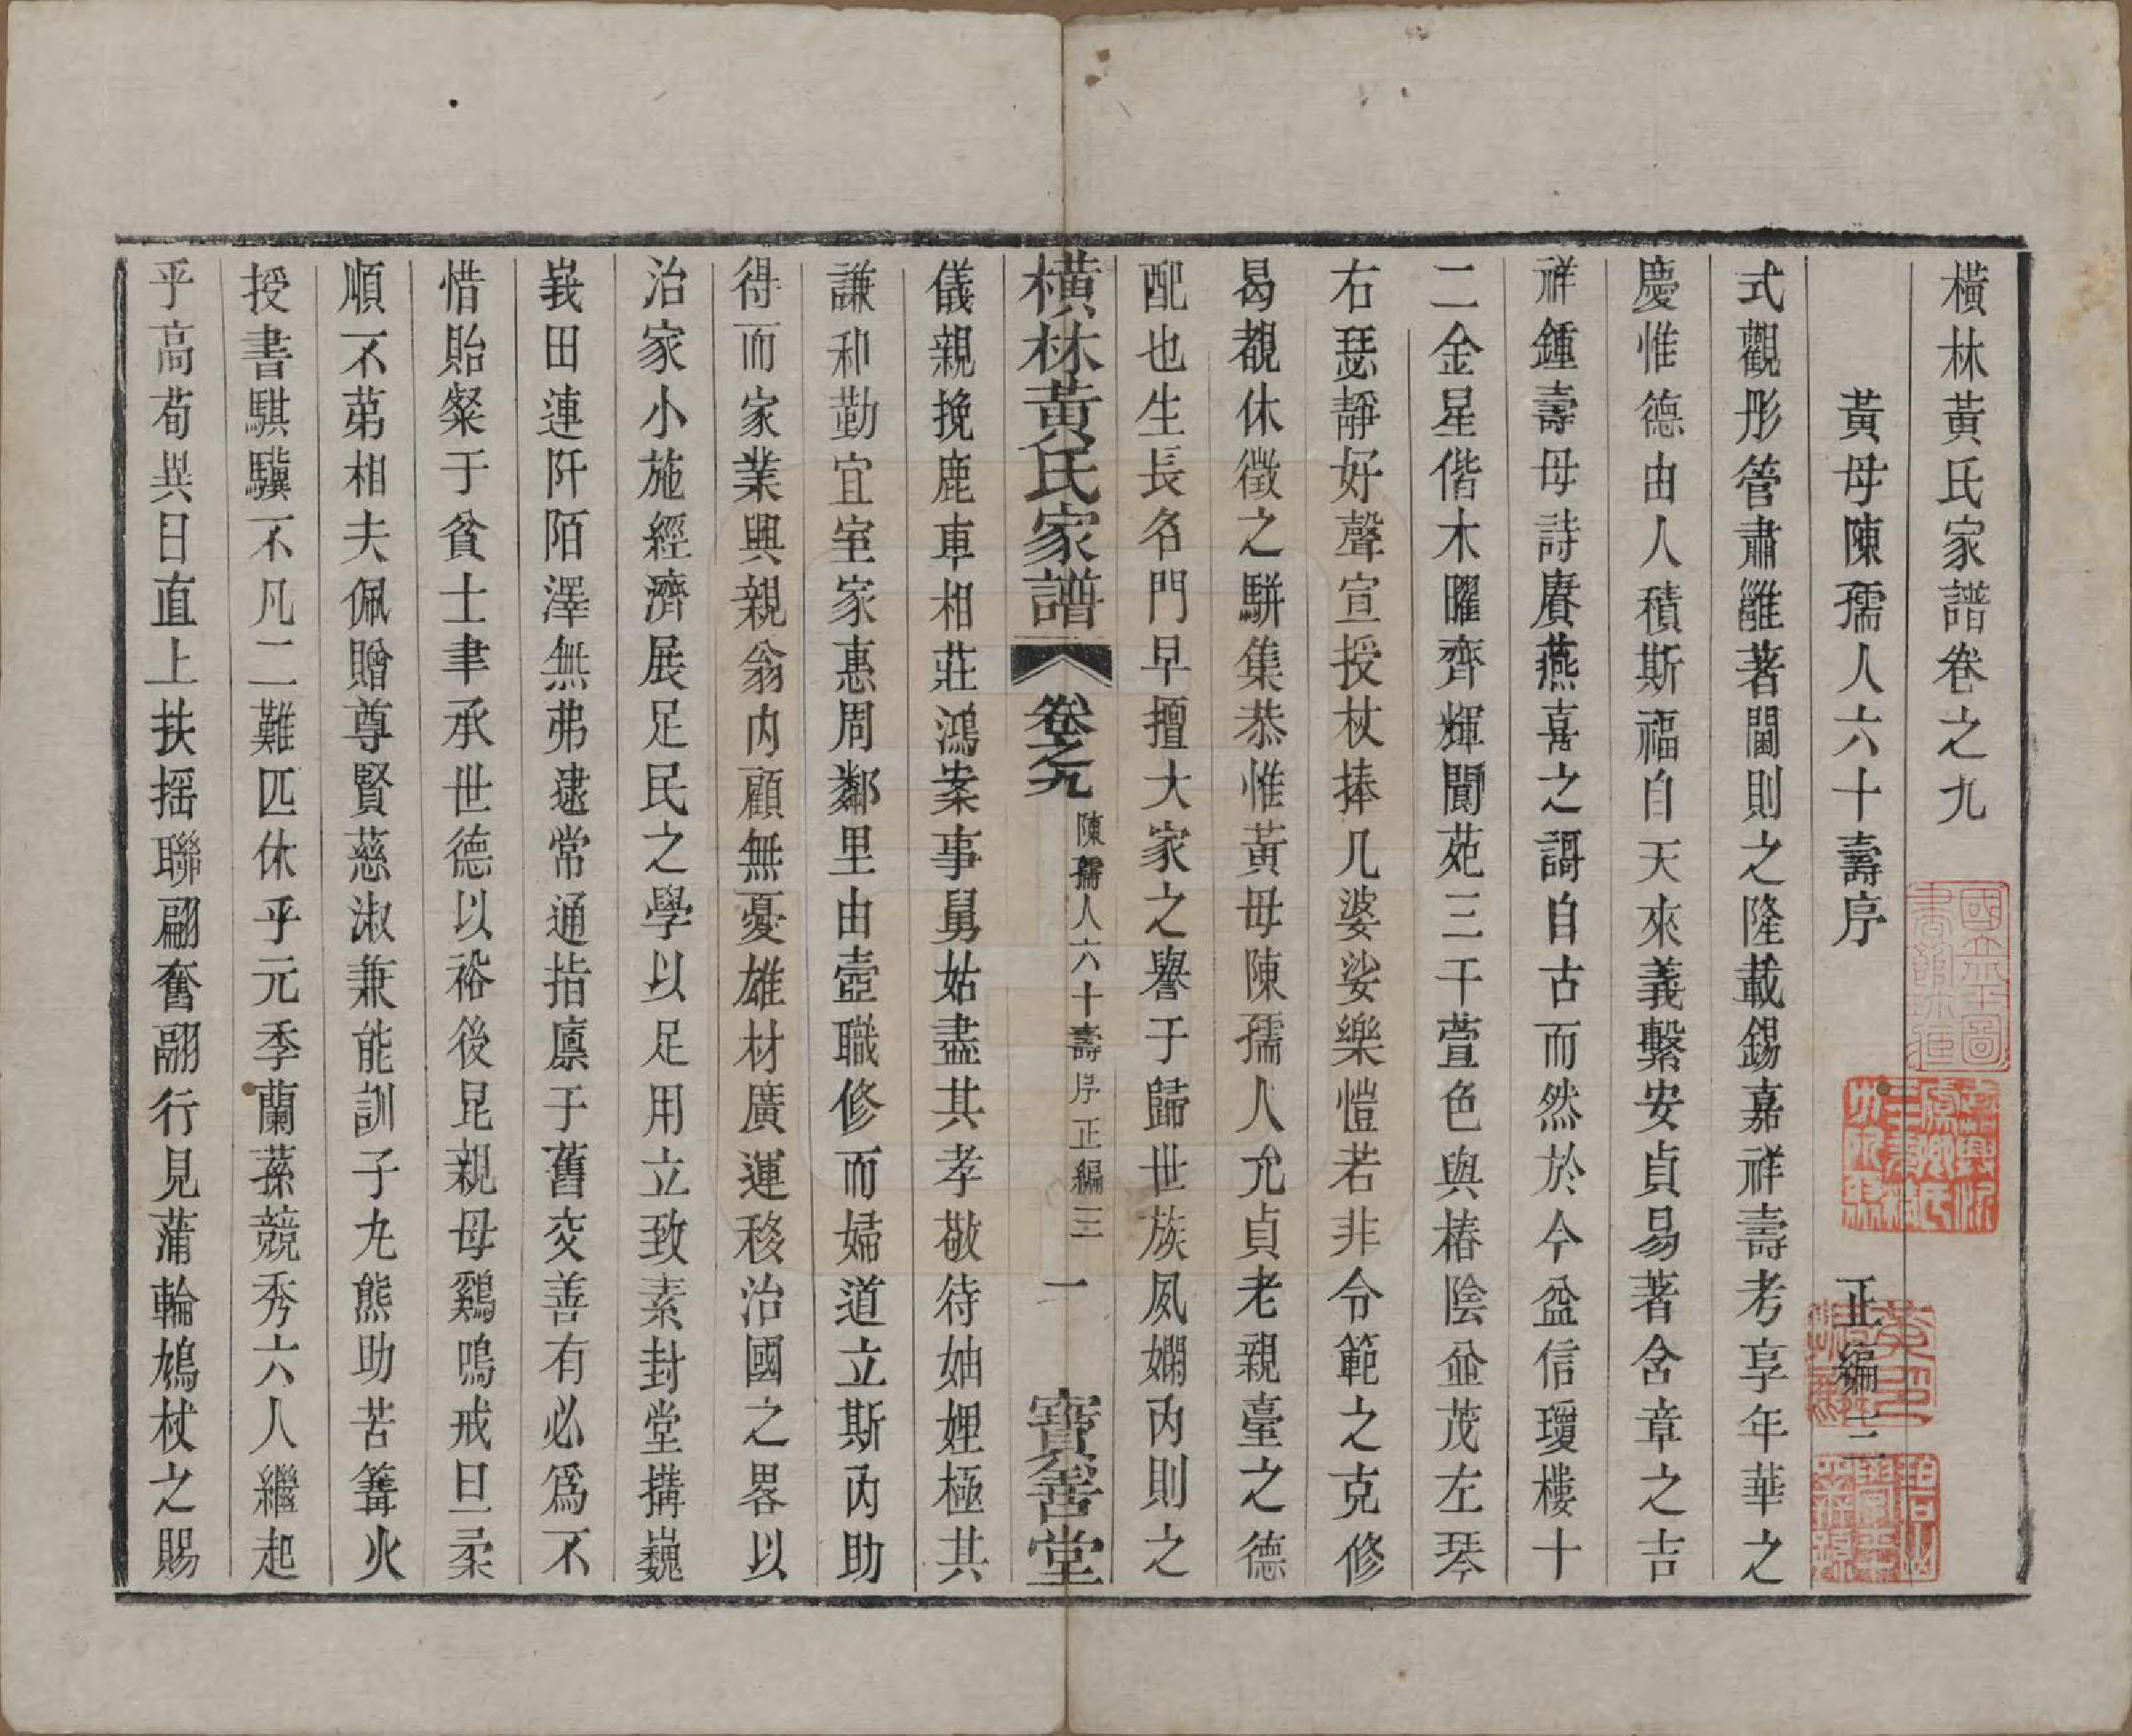 橫林黃氏家譜卷之九
黃母陳孺人六十壽序　正編三
式觀彤管肅雝著閫則之隆載錫嘉祥壽考享年華之
慶惟德由人積斯福自天來義繫安貞易著含章之吉
祥鍾壽母詩賡燕喜之謌自古而然於今益信瓊樓十
二金星偕木曜齊輝閬苑三千萱色與椿陰並茂左琴
右瑟靜好聲宣授杖捧几婆娑樂愷若非令範之克修
曷覩休徵之駢集恭惟黃母陳孺人允貞老親臺之德
配也生長名門早擅大家之譽于歸世族夙嫻內則之
橫林黃氏家譜　卷之九　陳孺人六十壽序　正編三　一　寶善堂
儀親挽鹿車相莊鴻案事舅姑盡其孝敬待妯娌極其
謙和勤宜室家惠周鄰里由壼職修而婦道立斯內助
得而家業興親翁內顧無憂雄材廣運移治國之畧以
治家小施經濟展足民之學以足用立致素封堂搆巍
峩田連阡陌澤無弗逮常通指廪于舊交善有必爲不
惜貽粲于貧士聿承世德以裕後昆親母鷄鳴戒旦柔
順不第相夫佩贈尊賢慈淑兼能訓子九熊助苦篝火
授書騏驥不凡二難匹休乎元季蘭蓀競秀六人繼起
乎高荀異日直上扶搖聯翩奮翮行見蒲輪鳩杖之賜